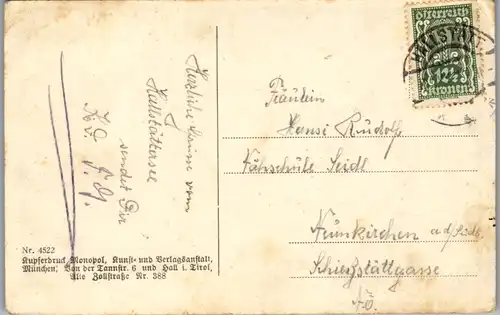 Herzliche Grüsse vom
Hallstättersee
sendet Dir
Nr. 4522
Kupferdruck Monopol, Kunst- und Verlagsanstalt,
München, Von der Tannstr. 6 und Hall i. Tirol,
Alte Zollstraße Nr. 388
Österreich
12½
Kronen
Fräulein
Hansi Rudolf
Nähschule Seidl
Neunkirchen a.d.
Schießstättgasse